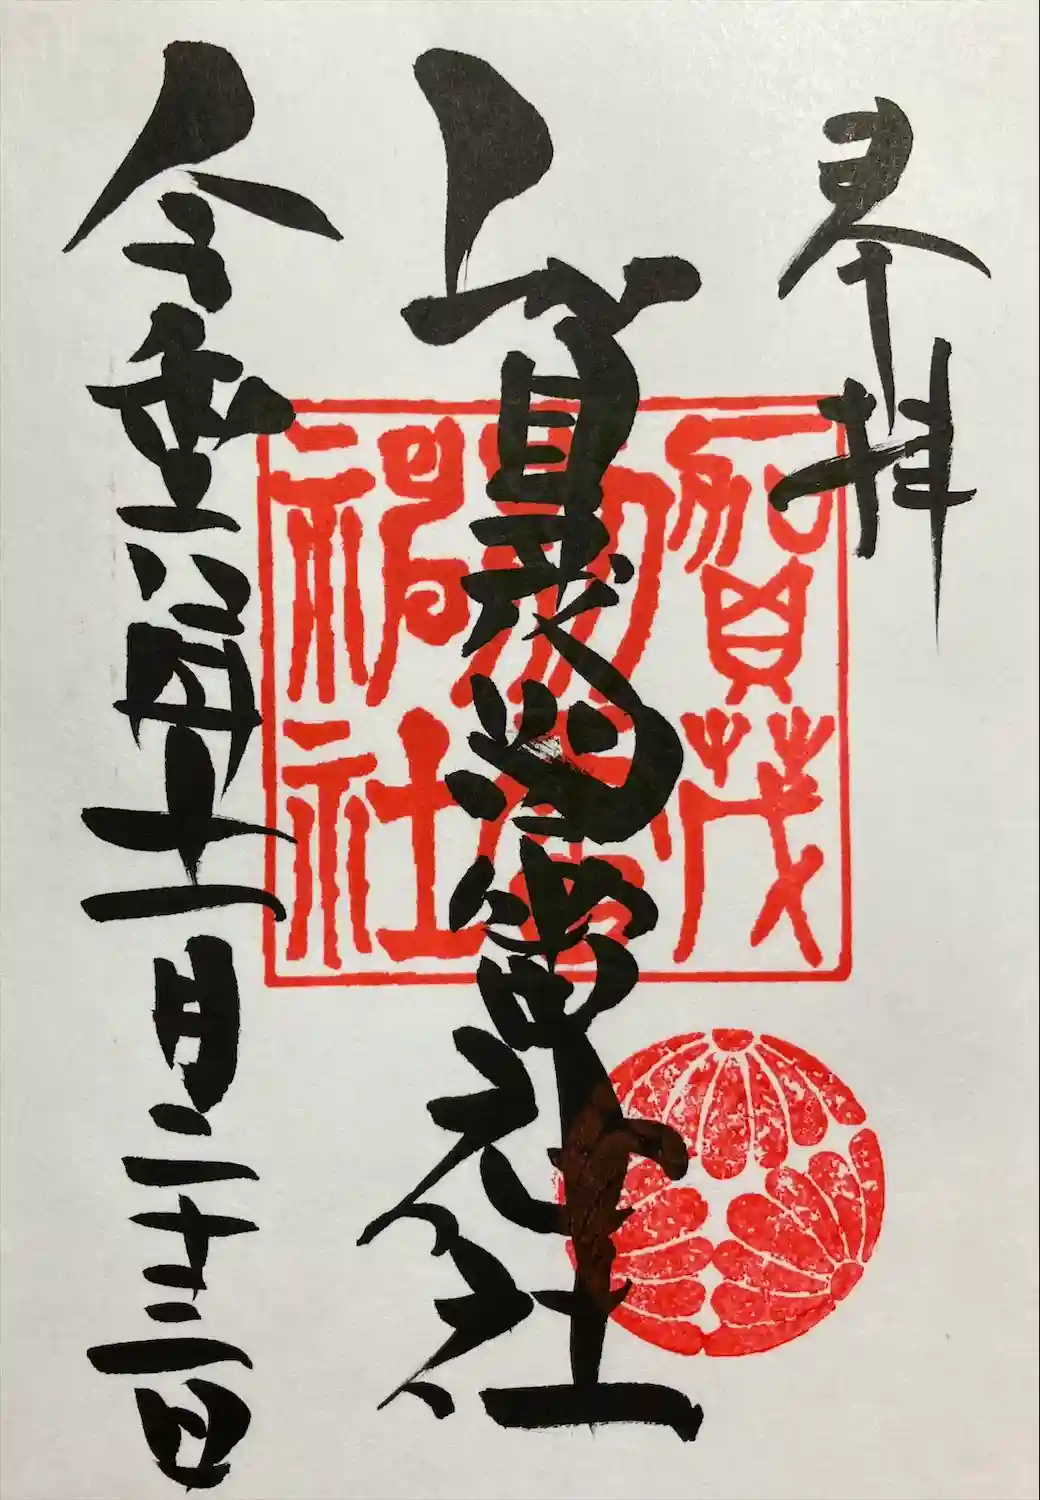 奉拝
賀茂別雷神社
令和 年十一月二十三日
賀茂
別雷
神社